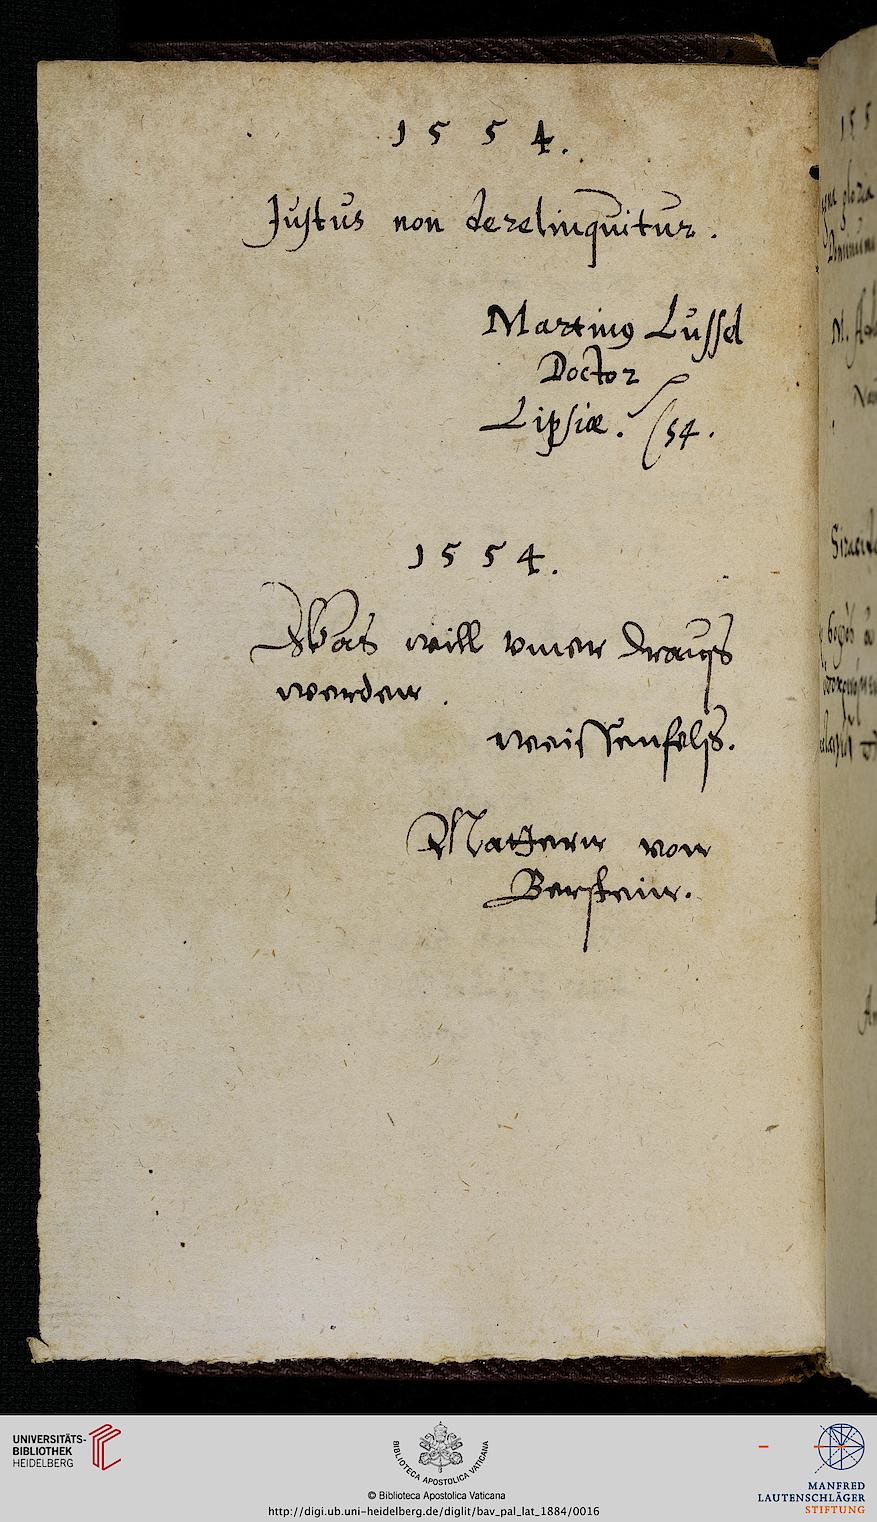 1554.
Justus non derelinquitur.
Martinꝰ Lussel
Doctor
Lipsiæ. /54.
1554.
Was will nuer draus
werdenn.
weissenfels.
Matternn von
Bernstein.
UNIVERSITÄTS-
BIBLIOTHEK
HEIDELBERG
BIBLIOTECA APOSTOLICA VATICANA
© Biblioteca Apostolica Vaticana
http://digi.ub.uni-heidelberg.de/diglit/bav_pal_lat_1884/0016
MANFRED
LAUTENSCHLÄGER
STIFTUNG